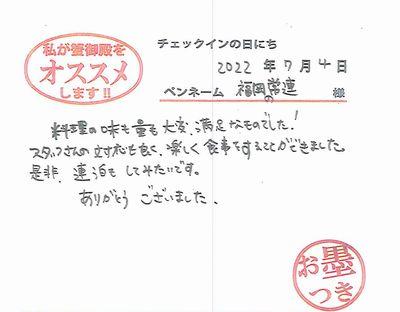 私が蟹御殿を
オススメ
します!!
チェックインの日にち
2022 年 7 月 4 日
ペンネーム 福岡の常連 様
料理の味も量も大変、満足なものでした!
スタッフさんの対応も良く、楽しく食事をすることができました。
是非、連泊も してみたいです。
ありがとう ございました。
お墨
つき